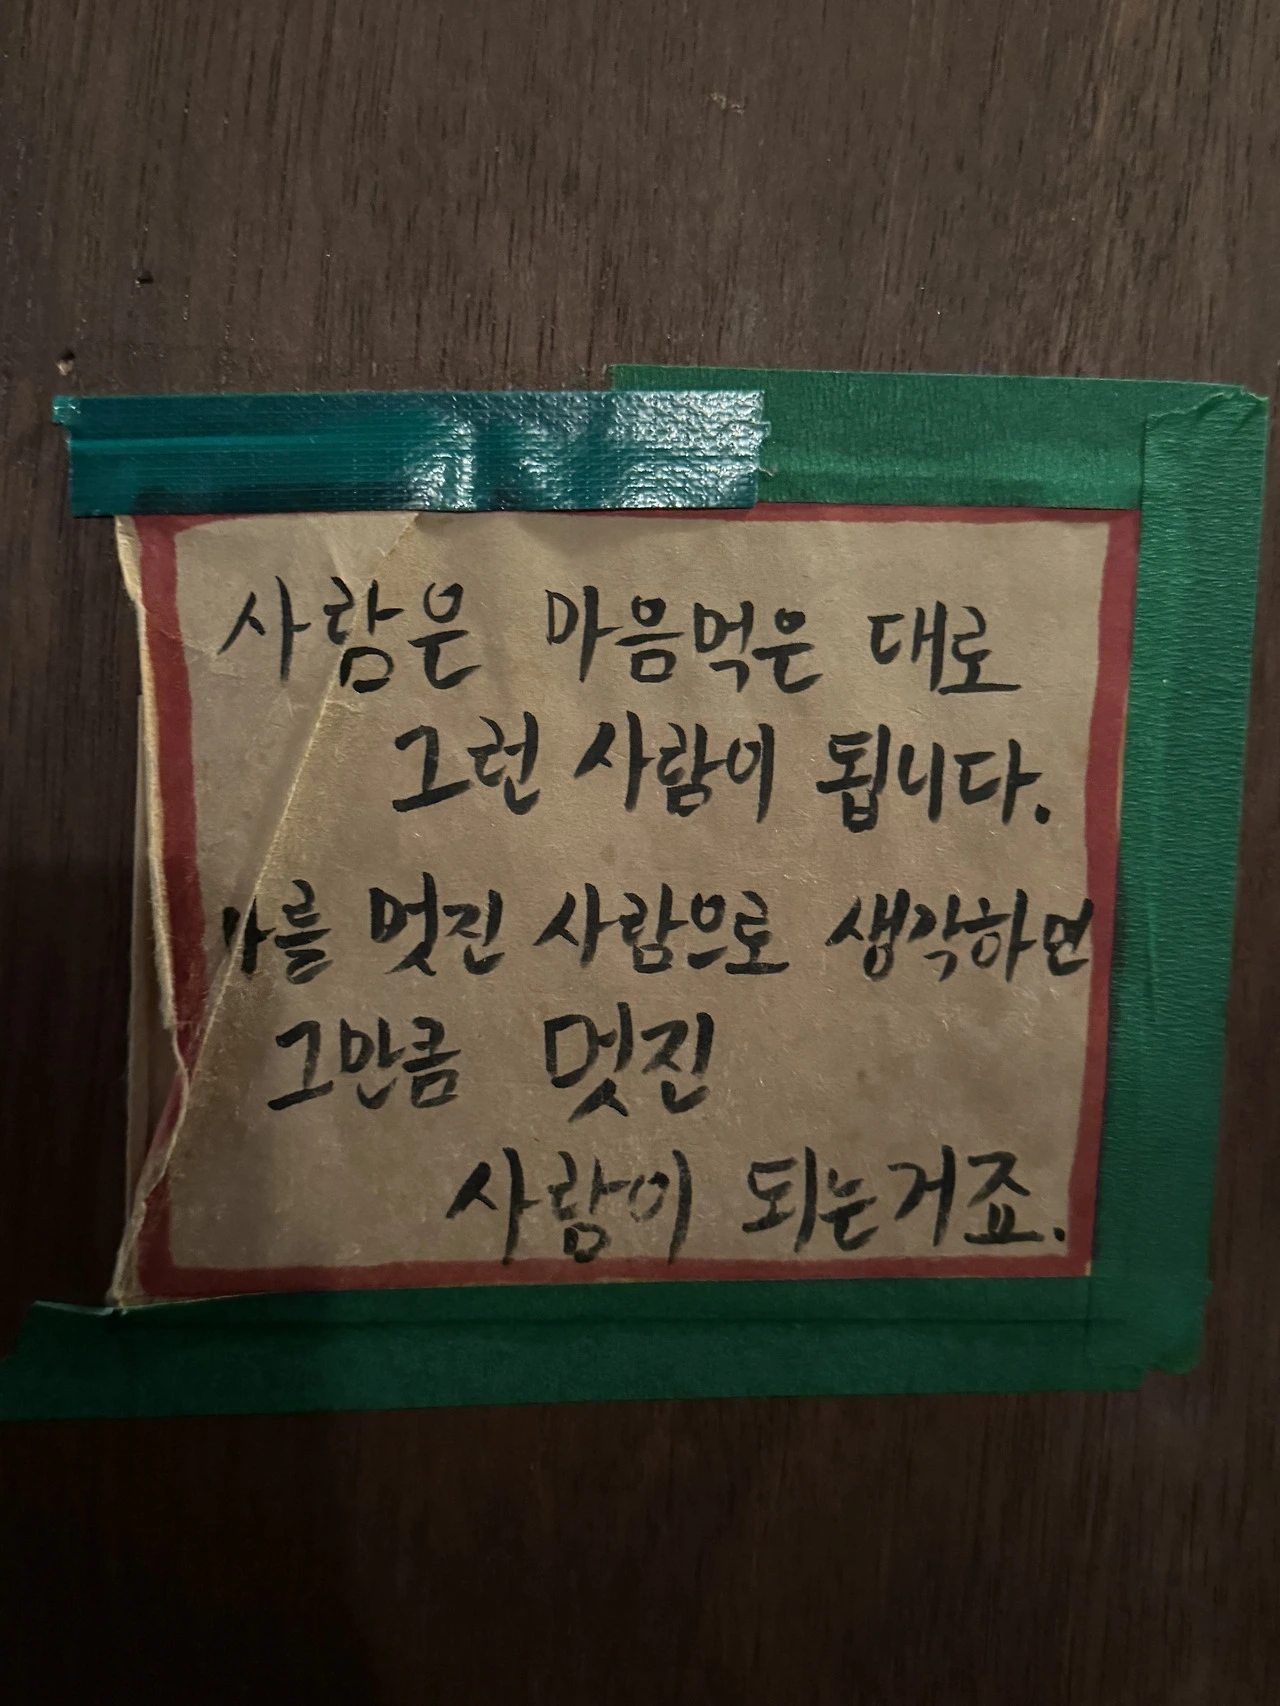 사람은 마음먹은 대로
그런 사람이 됩니다.
멋진 사람으로 생각하면
그만큼 멋진
사람이 되는거죠.